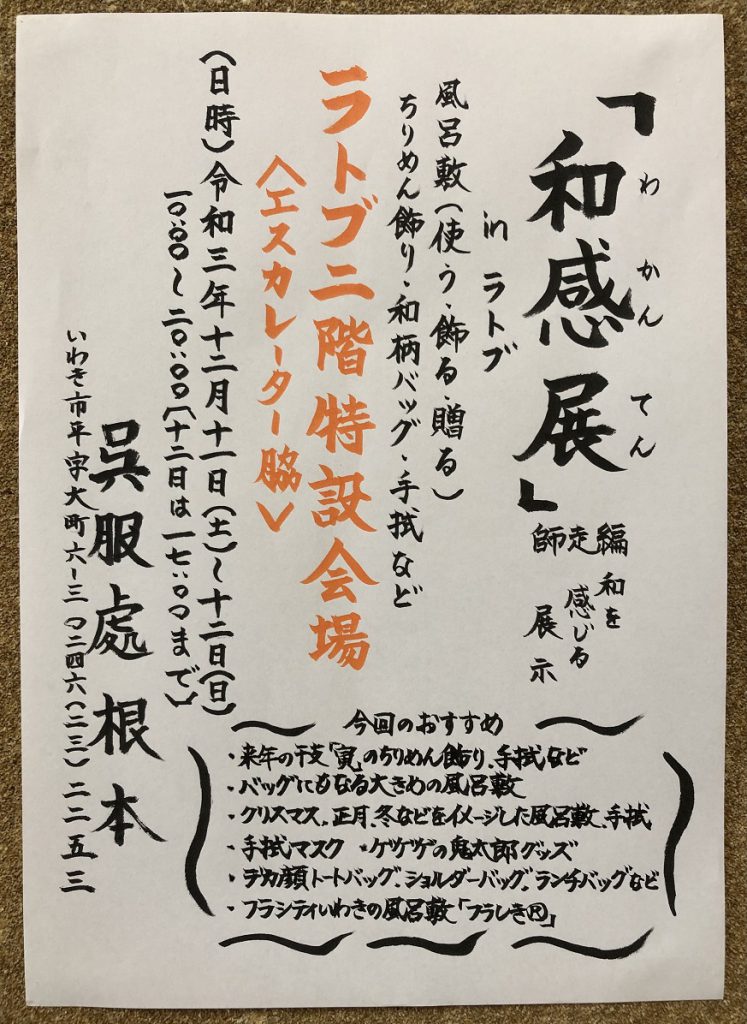 「和感展」
わかんてん
師走編
和を
感じる
展示
in ラトブ
風呂敷(使う・飾る・贈る)
ちりめん飾り・和柄バッグ・手拭など
ラトブ二階特設会場
〈エスカレーター脇〉
(日時)令和三年十二月十一日(土)~十二日(日)
一〇:〇〇~二〇:〇〇〔十二日は一七:〇〇まで〕
呉服處 根本
いわき市平字大町六-三 〇二四六(二三)二二五三
今回のおすすめ
・来年の干支「寅」のちりめん飾り、手拭など
・バッグにもなる大きめの風呂敷
・クリスマス、正月、冬などをイメージした風呂敷、手拭
・手拭マスク ・ゲゲゲの鬼太郎グッズ
・デカ顔トートバッグ、ショルダーバッグ、ランチバッグなど
・フラシティいわきの風呂敷「フラしき®」